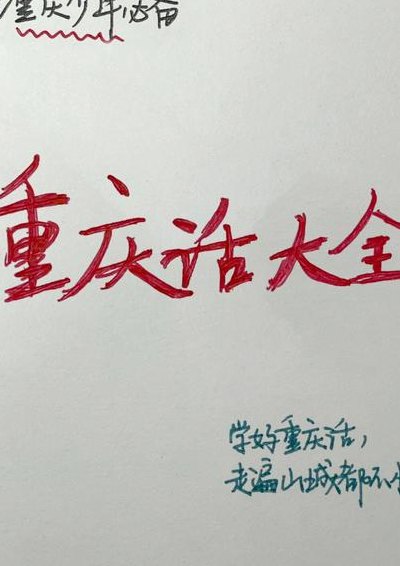 重庆少年必备
重庆话大全
学好重庆话，
走遍山城都不